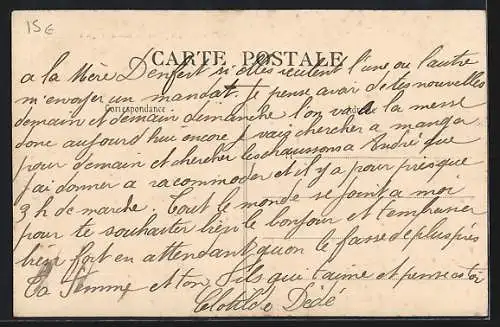 15€
CARTE POSTALE
a la Mère Denfert si elles veulent l'une ou l'autre
m'envoyer un mandat. Je pense avoir de tes nouvelles
Correspondance
demain et demain dimanche l'on va a la messe
donc aujourd'hui encore j vais chercher a manger
pour demain et chercher les chaussons a André que
j'ai donner a racommoder et il y a pour presque
3 h de marche. Tout le monde se joint a moi
pour te souhaiter bien le bonjour et t'embrasser
bien fort en attendant qu'on le fasse de plus près
Ta femme et ton fils qui t'aime et pense a toi
Clotilde Dédé